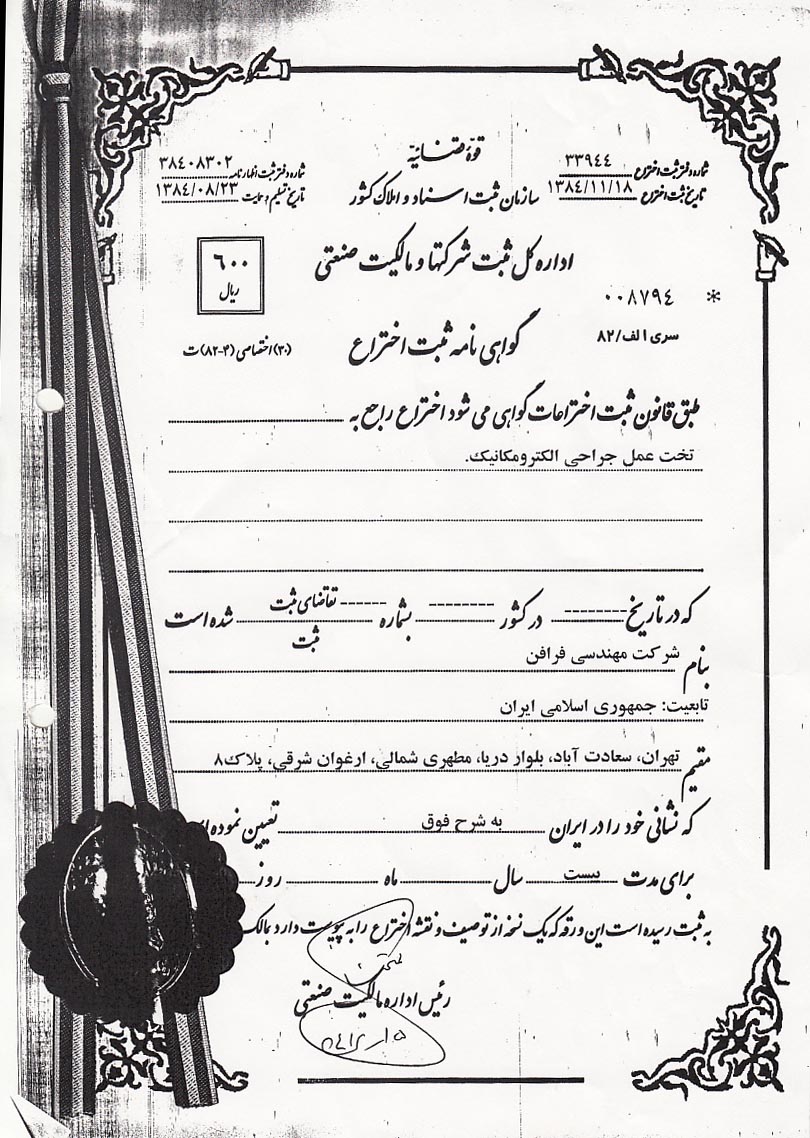 قوۀ قضائیّه
سازمان ثبت اسناد و املاک کشور
شماره دفتر ثبت اختراع ۳۳۹۴۴
تاریخ ثبت اختراع ۱۳۸۴/۱۱/۱۸
شماره دفتر ثبت اظهارنامه ۳۸۴۰۸۳۰۲
تاریخ تسلیم و حمایت ۱۳۸۴/۰۸/۲۳
اداره کل ثبت شرکتها و مالکیت صنعتی
۶۰۰
ریال
* ۰۰۸۷۹۴
سری الف/۸۲
گواهی نامه ثبت اختراع
(۳۰) اختصاصی (۴-۸۲) ت
طبق قانون ثبت اختراعات گواهی می شود اختراع راجع به
تخت عمل جراحی الکترومکانیک.
که در تاریخ -------- در کشور -------- بشماره ------ تقاضای ثبت شده است
ثبت
بنام شرکت مهندسی فرافن
تابعیت: جمهوری اسلامی ایران
مقیم تهران، سعادت آباد، بلوار دریا، مطهری شمالی، ارغوان شرقی، پلاک۸
که نشانی خود را در ایران به شرح فوق تعیین نموده
برای مدت بیست سال ماه روز
به ثبت رسیده است این ورقه که یک نسخه از توصیف و نقشه اختراع را به پیوست دارد بمالک
رئیس اداره مالکیت صنعتی